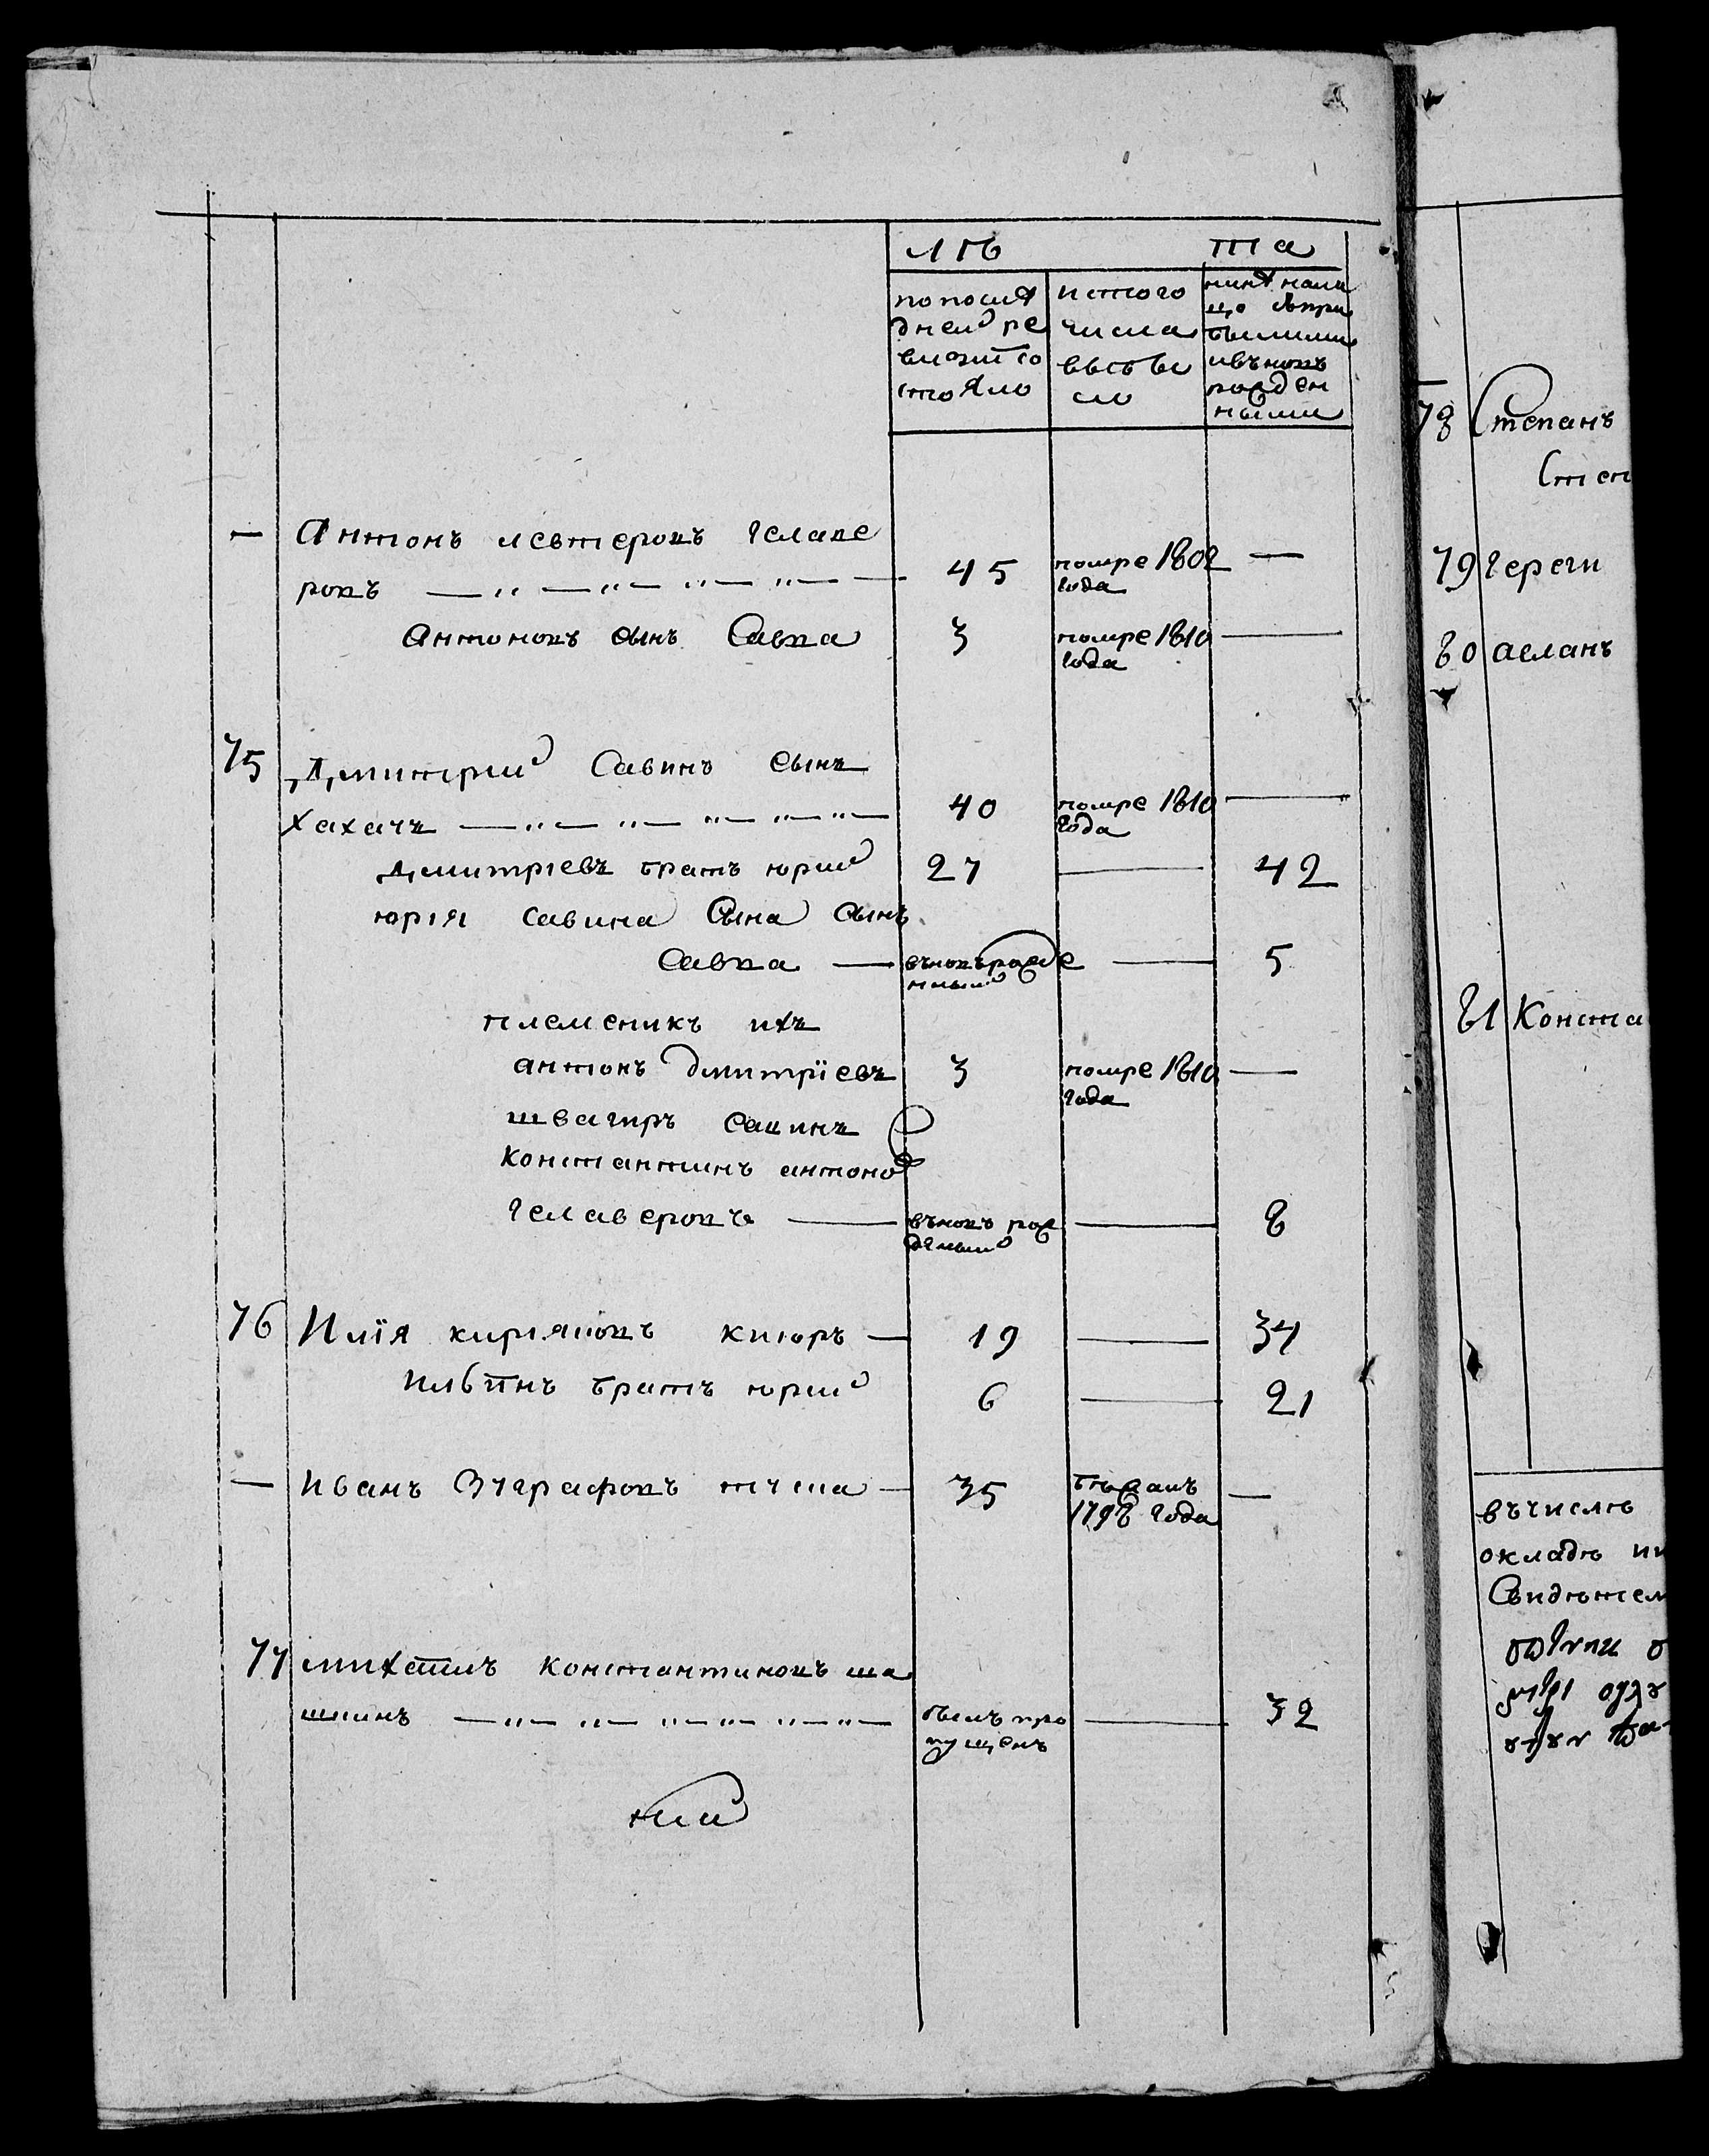 лѣ та
по послѣ
дней ре
визіи со
стояло
истого
числа
высбы
ло
ннѣ нали
цо съпри
былими
ивъновъ
рожден
ными
— Антонъ левтеровъ челаве
ровъ — 45 помре 1802 —
года
Антоновъ сынъ Савва 3 помре 1810 —
года
75 Димитрий Савинъ сынъ
хахачъ — 40 помре 1810 —
года
Димитріевъ братъ юрий 27 — 42
юрія савина сына сынъ
Савва — въновърожде — 5
нный
племеникъ ихъ
антонъ дмитріевъ 3 помре 1810 —
года
швагиръ
константинъ антоно
челаверовъ — въновъ рож — 8
деный
76 Илїя киріяковъ — 19 — 34
ильинъ братъ юрий 6 — 21
— иванъ — 35 бѣжалъ —
1798 года
77 михаилъ константиновъ ша
— былъ про — 32
пущенъ
78 Степанъ
Степ
79 гереги
80 асланъ
81 Конста
въчислѣ
окладѣ
Свидѣтел